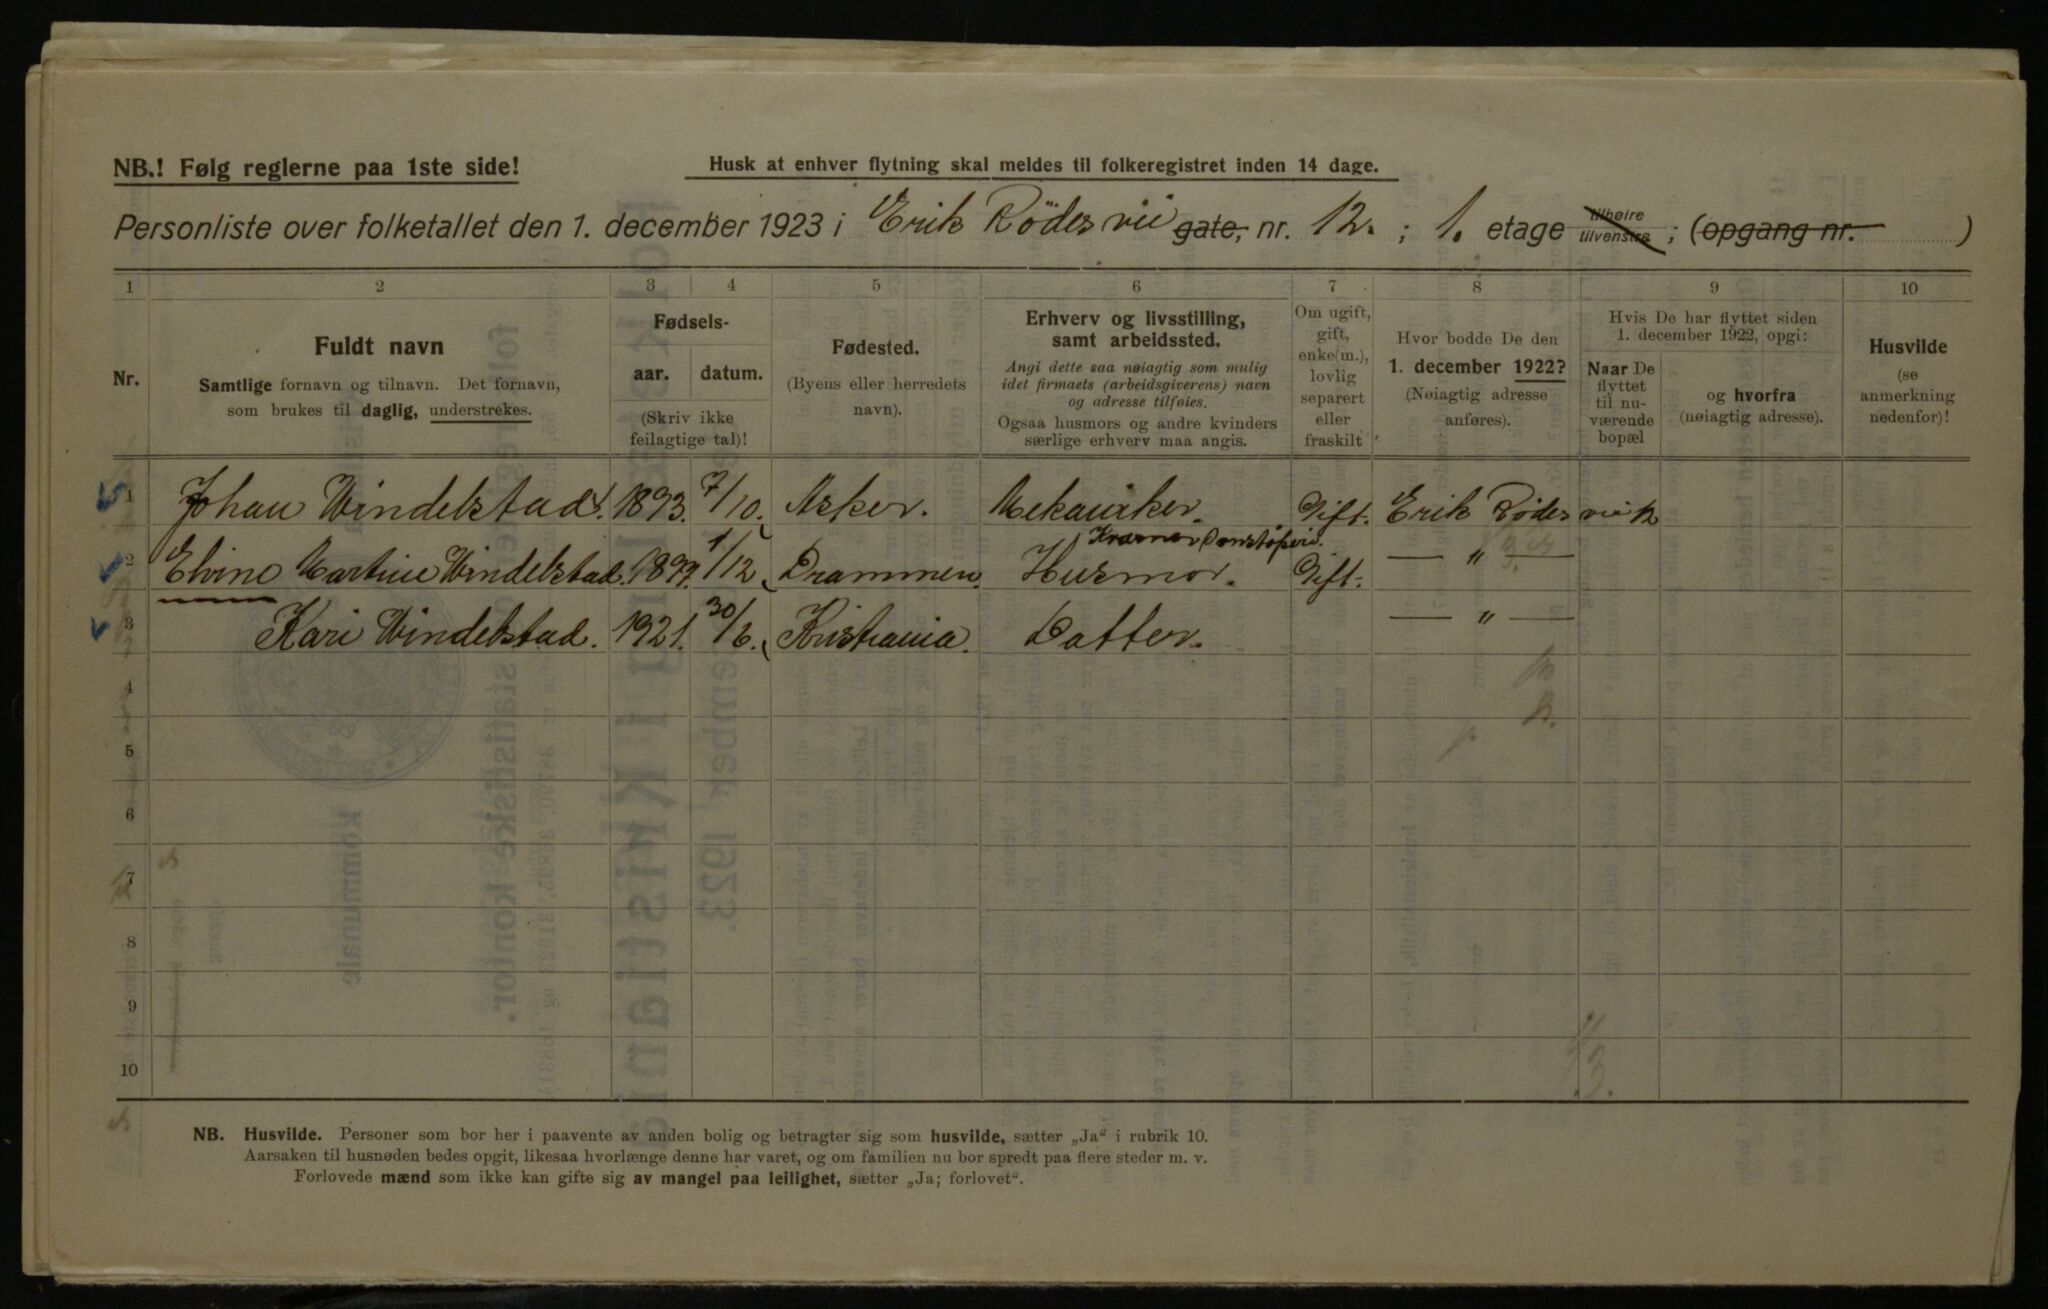 NB.! Følg reglerne paa 1ste side!
Husk at enhver flytning skal meldes til folkeregistret inden 14 dage.
Personliste over folketallet den 1. december 1923 i Erik Rödes vei gate, nr. 12. ; 1. etage tilhøire tilvenstre ; (opgang nr. )
1 2 3 4 5 6 7 8 9 10
Nr.
Fuldt navn
Samtlige fornavn og tilnavn. Det fornavn,
som brukes til daglig, understrekes.
Fødsels-
aar. datum.
(Skriv ikke
feilagtige tal)!
Fødested.
(Byens eller herredets
navn).
Erhverv og livsstilling,
samt arbeidssted.
Angi dette saa nøiagtig som mulig
idet firmaets (arbeidsgiverens) navn
og adresse tilføies.
Ogsaa husmors og andre kvinders
særlige erhverv maa angis.
Om ugift,
gift,
enke(m.),
lovlig
separert
eller
fraskilt
Hvor bodde De den
1. december 1922?
(Nøiagtig adresse
anføres).
Hvis De har flyttet siden
1. december 1922, opgi:
Naar De
flyttet
til nu-
værende
bopæl
og hvorfra
(nøiagtig adresse).
Husvilde
(se
anmerkning
nedenfor)!
1 Johan Windelstad. 1893. 7/10. Asker. Mekaniker. Gift. Erik Rödes vei 12
2 Elvine Martine Windelstad. 1899. 1/12 Drammen. Husmor. Gift. — " —
3 Kari Windelstad. 1921. 30/6. Kristiania. Datter. — " —
4
5
6
7
8
9
10
NB. Husvilde. Personer som bor her i paavente av anden bolig og betragter sig som husvilde, sætter „Ja“ i rubrik 10.
Aarsaken til husnøden bedes opgit, likesaa hvorlænge denne har varet, og om familien nu bor spredt paa flere steder m. v.
Forlovede mænd som ikke kan gifte sig av mangel paa leilighet, sætter „Ja; forlovet“.